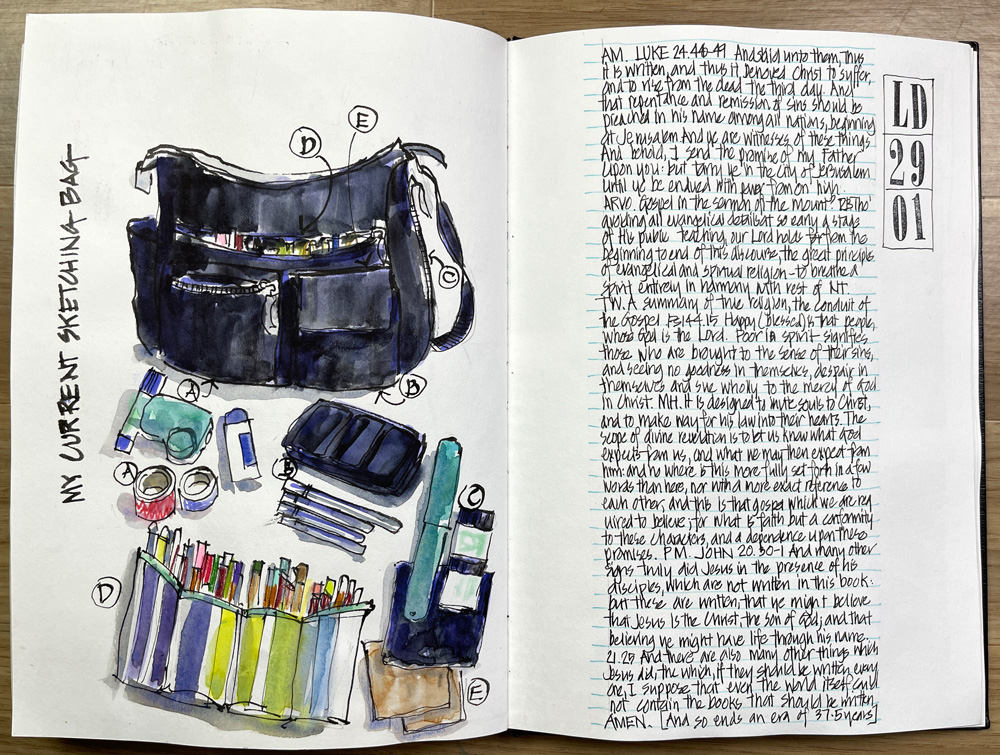 MY CURRENT SKETCHING BAG
D
E
C
A
B
A
B
C
D
E
AM. LUKE 24.44-49 And said unto them, Thus
it is written, and thus it behoved Christ to suffer,
and to rise from the dead the third day. And
that repentance and remission of sins should be
preached in his name among all nations, beginning
at Jerusalem And ye are witnesses of these things
And behold, I send the promise of my Father
upon you: but tarry ye in the city of Jerusalem
until ye be endued with power from on high.
ARVO. Gospel in the sermon of the mount
avoiding all evangelical details at so early a stage
of His public teaching, our Lord holds forth from the
beginning to end of this discourse, the great principles
of evangelical and spiritual religion - to breathe a
spirit entirely in harmony with rest of NT.
TW. A summary of true religion, the conduit of
the Gospel Ps 144.15 Happy (Blessed) is that people,
whose God is the Lord. Poor in spirit signifies
those who are brought to the sense of their sins,
and seeing no goodness in themselves, despair in
themselves and sue wholly to the mercy of God
in Christ. MH. It is designed to invite souls to Christ,
and to make way for his law into their hearts. The
scope of divine revelation is to let us know what God
expects from us, and what we may then expect from
him: and no where is this more fully set forth in a few
words than here, nor with a more exact reference to
each other, and this is that gospel which we are req
uired to believe; for what is faith but a conformity
to these characters, and a dependence upon these
promises. P.M. JOHN 20.30-1 And many other
signs truly did Jesus in the presence of his
disciples, which are not written in this book:
but these are written, that ye might believe
that Jesus is the Christ, the son of God; and that
believing ye might have life though his name.
21.25 And there are also many other things which
Jesus did, the which, if they should be written every
one, I suppose that even the world itself could
not contain the books that should be written.
AMEN. [And so ends an era of 37.5 years]
LD
29
01